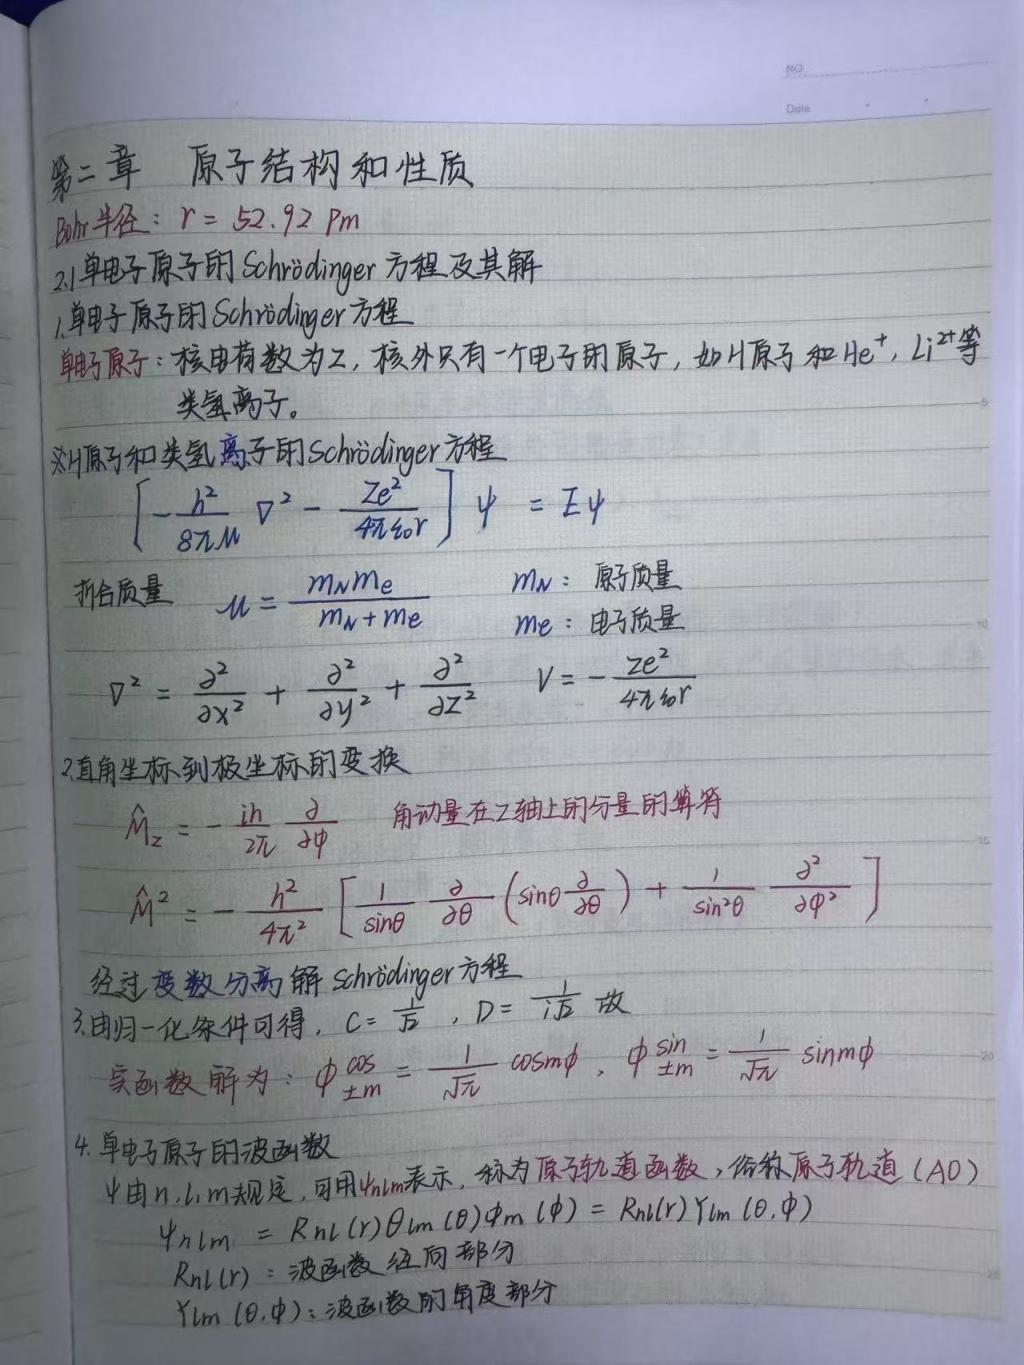 NO.
Date
第二章 原子结构和性质
Bohr半径：r = 52.92 pm
2.1 单电子原子的Schrödinger方程及其解
1.单电子原子的Schrödinger方程
单电子原子：核电荷数为Z，核外只有一个电子的原子，如H原子和He⁺，Li²⁺等
类氢离子。
※H原子和类氢离子的Schrödinger方程
[-h²/8πμ ∇² - Ze²/4πε₀r] ψ = Eψ
折合质量 μ = mNme/(mN+me) mN：原子质量
me：电子质量
∇² = ∂²/∂x² + ∂²/∂y² + ∂²/∂z² V = -Ze²/4πε₀r
2.直角坐标到极坐标的变换
M̂z = -ih/2π ∂/∂φ 角动量在Z轴上的分量的算符
M̂² = -h²/4π² [1/sinθ ∂/∂θ (sinθ ∂/∂θ) + 1/sin²θ ∂²/∂φ²]
经过变数分离解Schrödinger方程
3.由归一化条件可得，C = 1/√2，D = 1/i√2 故
实函数解为：Φ^cos_±m = 1/√π cosmφ，Φ^sin_±m = 1/√π sinmφ
4.单电子原子的波函数
ψ由n,l,m规定，可用ψnlm表示，称为原子轨道函数，俗称原子轨道（AO）
ψnlm = Rnl(r)Θlm(θ)Φm(φ) = Rnl(r)Ylm(θ,φ)
Rnl(r)：波函数径向部分
Ylm(θ,φ)：波函数的角度部分
5
10
15
20
25